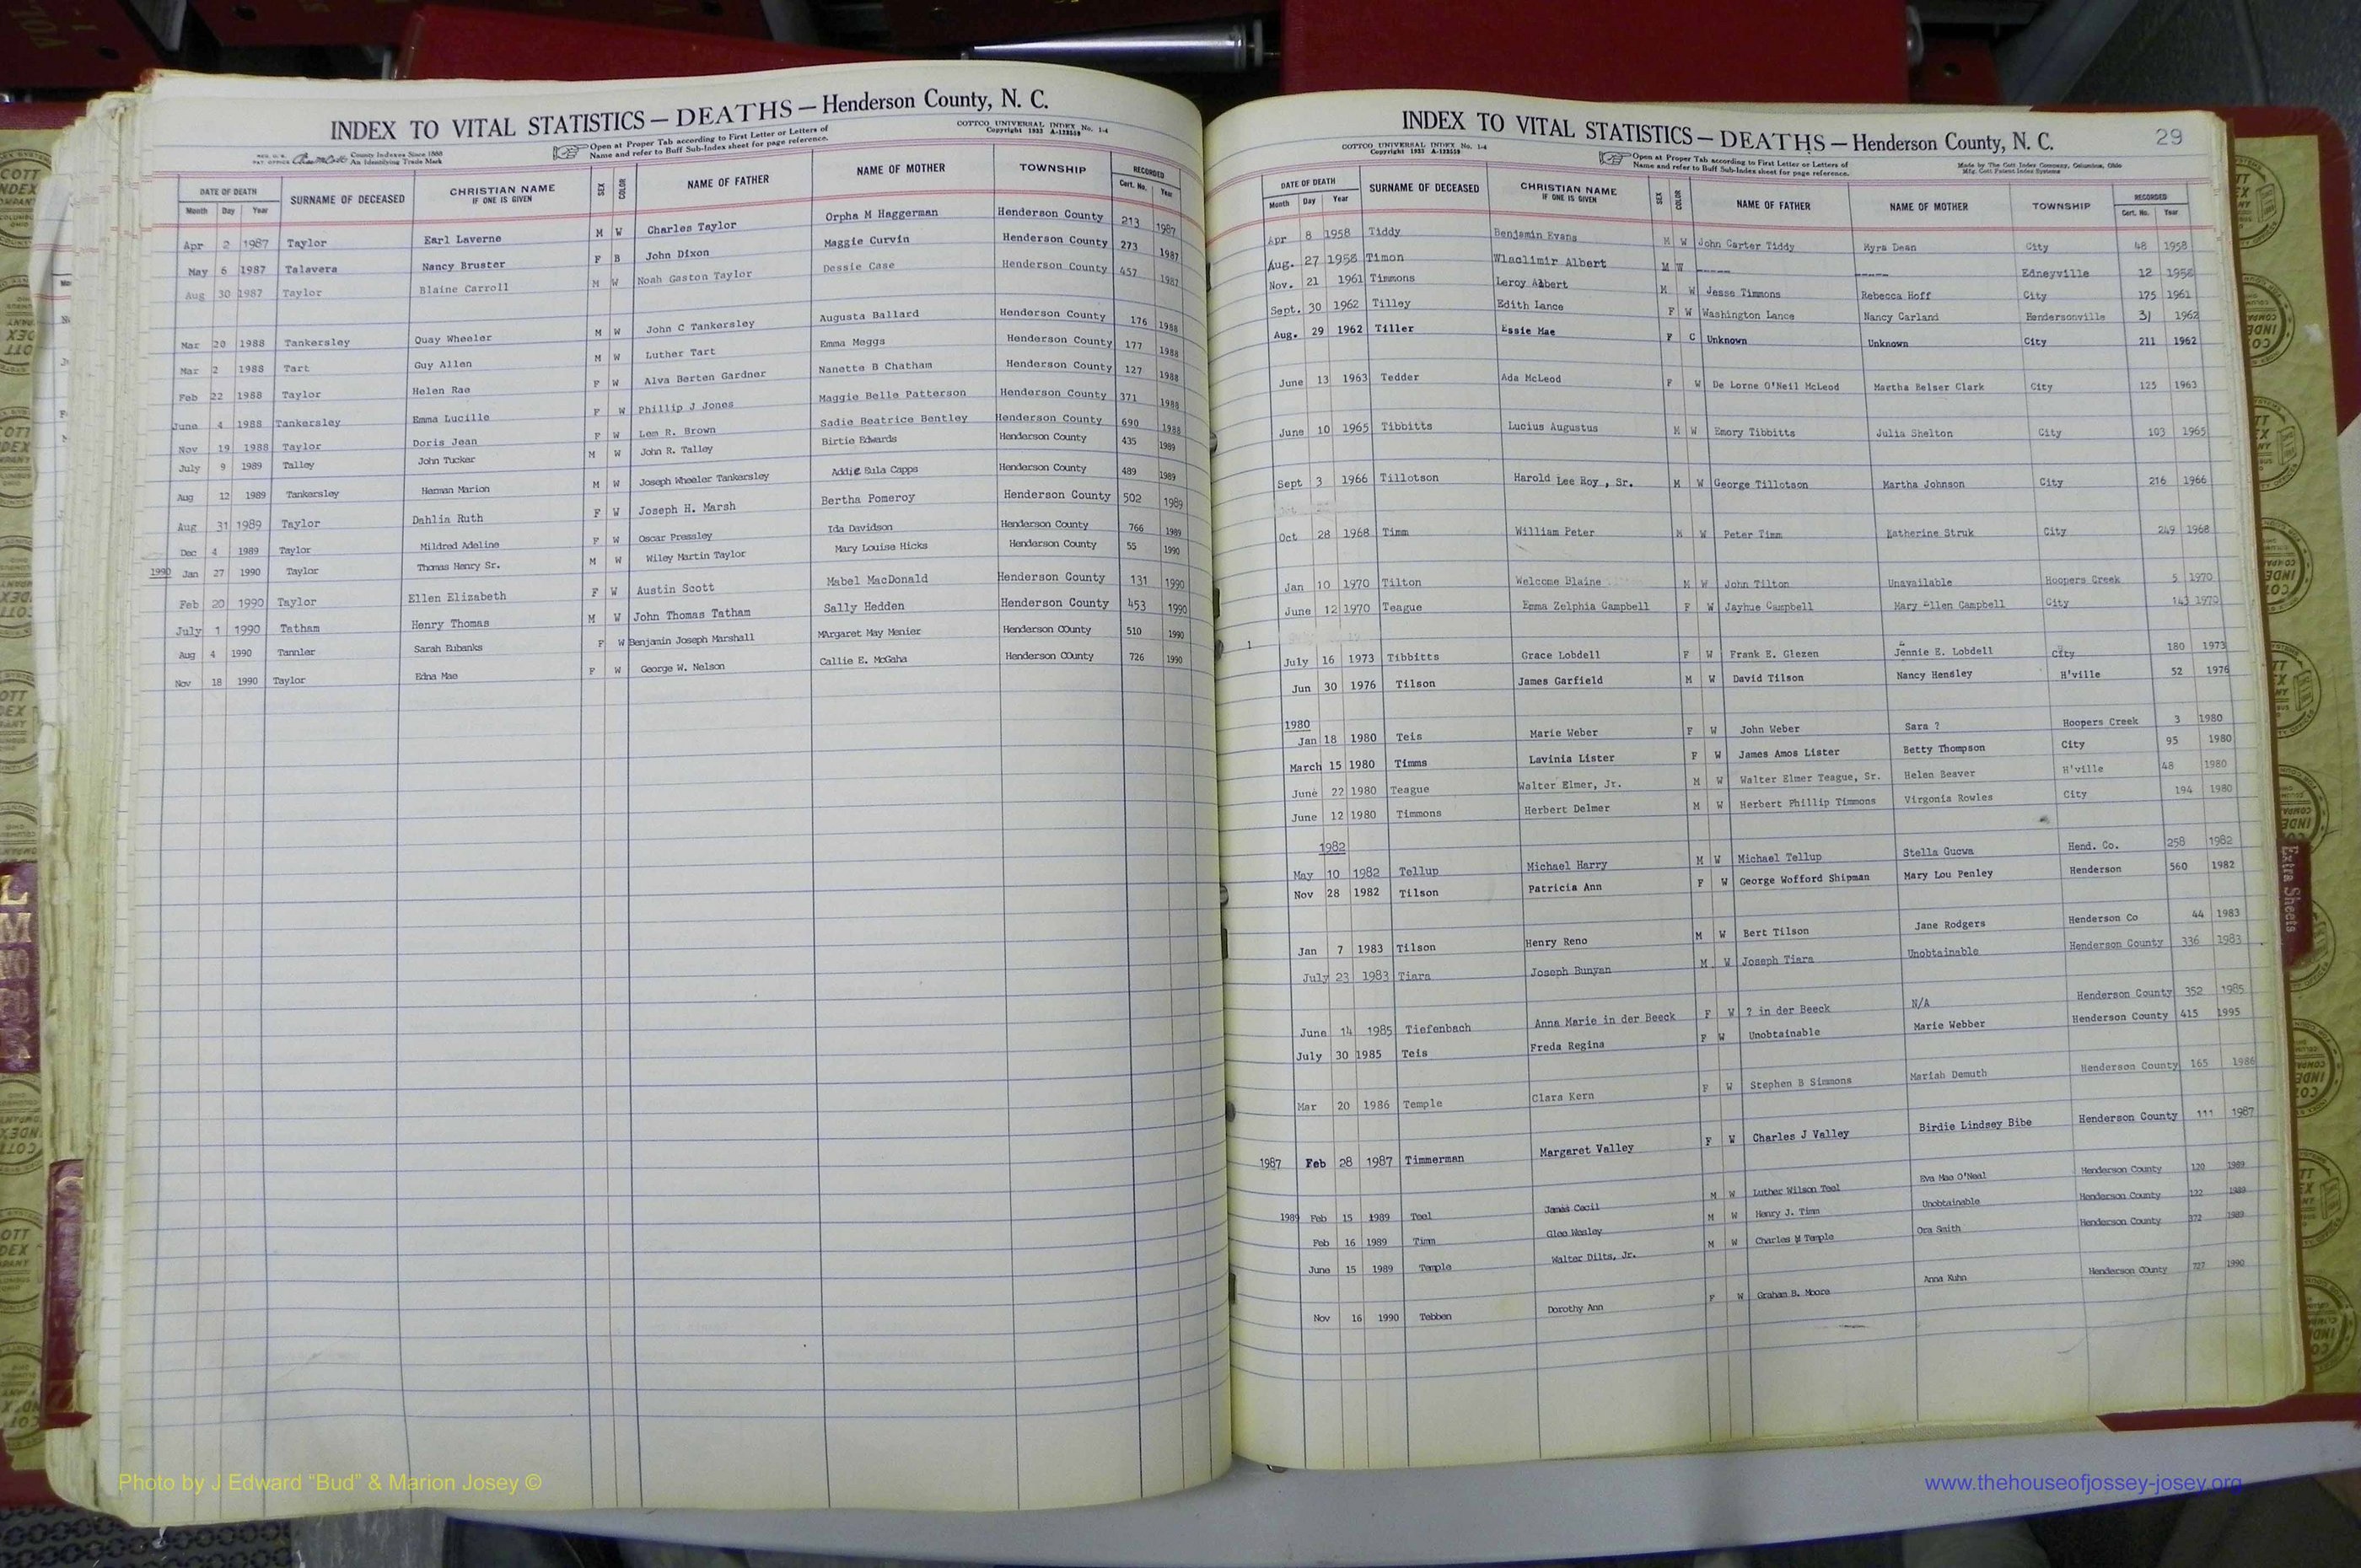 INDEX TO VITAL STATISTICS — DEATHS — Henderson County, N. C.
County Indexes Since 1888
An Identifying Trade Mark
Open at Proper Tab according to First Letter or Letters of
Name and refer to Buff Sub-Index sheet for page reference.
COTTCO UNIVERSAL INDEX No. 1-4
Copyright 1933 A-122559
DATE OF DEATH SURNAME OF DECEASED CHRISTIAN NAME IF ONE IS GIVEN SEX COLOR NAME OF FATHER NAME OF MOTHER TOWNSHIP RECORDED
Month Day Year Cert. No. Year
Apr 2 1987 Taylor Earl Laverne M W Charles Taylor Orpha M Haggerman Henderson County 213 1987
May 6 1987 Talavera Nancy Bruster F B John Dixon Maggie Curvin Henderson County 273 1987
Aug 30 1987 Taylor Blaine Carroll M W Noah Gaston Taylor Dessie Case Henderson County 457 1987
Mar 20 1988 Tankersley Quay Wheeler M W John C Tankersley Augusta Ballard Henderson County 176 1988
Mar 2 1988 Tart Guy Allen M W Luther Tart Emma Meggs Henderson County 177 1988
Feb 22 1988 Taylor Helen Rae F W Alva Berten Gardner Nanette B Chatham Henderson County 127 1988
June 4 1988 Tankersley Emma Lucille F W Phillip J Jones Maggie Belle Patterson Henderson County 371 1988
Nov 19 1988 Taylor Doris Jean F W Lem R. Brown Sadie Beatrice Bentley Henderson County 690 1988
July 9 1989 Talley John Tucker M W John R. Talley Birtie Edwards Henderson County 435 1989
Aug 12 1989 Tankersley Herman Marion M W Joseph Wheeler Tankersley Addie Eula Capps Henderson County 489 1989
Aug 31 1989 Taylor Dahlia Ruth F W Joseph H. Marsh Bertha Pomeroy Henderson County 502 1989
Dec 4 1989 Taylor Mildred Adeline F W Oscar Pressley Ida Davidson Henderson County 766 1989
1990 Jan 27 1990 Taylor Thomas Henry Sr. M W Wiley Martin Taylor Mary Louise Hicks Henderson County 55 1990
Feb 20 1990 Taylor Ellen Elizabeth F W Austin Scott Mabel MacDonald Henderson County 131 1990
July 1 1990 Tatham Henry Thomas M W John Thomas Tatham Sally Hedden Henderson County 453 1990
Aug 4 1990 Tannler Sarah Eubanks F W Benjamin Joseph Marshall MArgaret May Menier Henderson COunty 510 1990
Nov 18 1990 Taylor Edna Mae F W George W. Nelson Callie E. McGaha Henderson COunty 726 1990
INDEX TO VITAL STATISTICS — DEATHS — Henderson County, N. C. 29
COTTCO UNIVERSAL INDEX No. 1-4
Copyright 1933 A-122559
Open at Proper Tab according to First Letter or Letters of
Name and refer to Buff Sub-Index sheet for page reference.
Made by The Cott Index Company, Columbus, Ohio
Mfg. Cott Patent Index Systems
DATE OF DEATH SURNAME OF DECEASED CHRISTIAN NAME IF ONE IS GIVEN SEX COLOR NAME OF FATHER NAME OF MOTHER TOWNSHIP RECORDED
Month Day Year Cert. No. Year
Apr 8 1958 Tiddy Benjamin Evans M W John Carter Tiddy Myra Dean City 48 1958
Aug. 27 1958 Timon Wlaclimir Albert M W ----- ----- Edneyville 12 1958
Nov. 21 1961 Timmons Leroy Albert M W Jesse Timmons Rebecca Hoff City 175 1961
Sept. 30 1962 Tilley Edith Lance F W Washington Lance Nancy Carland Hendersonville 31 1962
Aug. 29 1962 Tiller Essie Mae F C Unknown Unknown City 211 1962
June 13 1963 Tedder Ada McLeod F W De Lorne O'Neil McLeod Martha Belser Clark City 125 1963
June 10 1965 Tibbitts Lucius Augustus M W Emory Tibbitts Julia Shelton City 103 1965
Sept 3 1966 Tillotson Harold Lee Roy , Sr. M W George Tillotson Martha Johnson City 216 1966
Oct 28 1968 Timm William Peter M W Peter Timm Katherine Struk City 249 1968
Jan 10 1970 Tilton Welcome Blaine M W John Tilton Unavailable Hoopers Creek 5 1970
June 12 1970 Teague Emma Zelphia Campbell F W Jayhue Campbell Mary Ellen Campbell City 143 1970
1
July 16 1973 Tibbitts Grace Lobdell F W Frank E. Glezen Jennie E. Lobdell City 180 1973
Jun 30 1976 Tilson James Garfield M W David Tilson Nancy Hensley H'ville 52 1976
1980
Jan 18 1980 Teis Marie Weber F W John Weber Sara ? Hoopers Creek 3 1980
March 15 1980 Timms Lavinia Lister F W James Amos Lister Betty Thompson City 95 1980
June 22 1980 Teague Walter Elmer, Jr. M W Walter Elmer Teague, Sr. Helen Beaver H'ville 48 1980
June 12 1980 Timmons Herbert Delmer M W Herbert Phillip Timmons Virgonia Rowles City 194 1980
1982
May 10 1982 Tellup Michael Harry M W Michael Tellup Stella Gucwa Hend. Co. 258 1982
Nov 28 1982 Tilson Patricia Ann F W George Wofford Shipman Mary Lou Penley Henderson 560 1982
Jan 7 1983 Tilson Henry Reno M W Bert Tilson Jane Rodgers Henderson Co 44 1983
July 23 1983 Tiara Joseph Bunyan M W Joseph Tiara Unobtainable Henderson County 336 1983
June 14 1985 Tiefenbach Anna Marie in der Beeck F W ? in der Beeck N/A Henderson County 352 1985
July 30 1985 Teis Freda Regina F W Unobtainable Marie Webber Henderson County 415 1995
Mar 20 1986 Temple Clara Kern F W Stephen B Simmons Mariah Demuth Henderson County 165 1986
1987 Feb 28 1987 Timmerman Margaret Valley F W Charles J Valley Birdie Lindsey Bibe Henderson County 111 1987
1989 Feb 15 1989 Teel James Cecil M W Luther Wilson Teel Eva Mae O'Neal Henderson County 120 1989
Feb 16 1989 Timm Gleo Wesley M W Henry J. Timm Unobtainable Henderson County 122 1989
June 15 1989 Temple Walter Dilts, Jr. M W Charles M Temple Ora Smith Henderson County 372 1989
Nov 16 1990 Tebben Dorothy Ann F W Graham B. Moore Anna Kuhn Henderson COunty 727 1990
Extra Sheets
Photo by J Edward “Bud” & Marion Josey ©
www.thehouseofjossey-josey.org